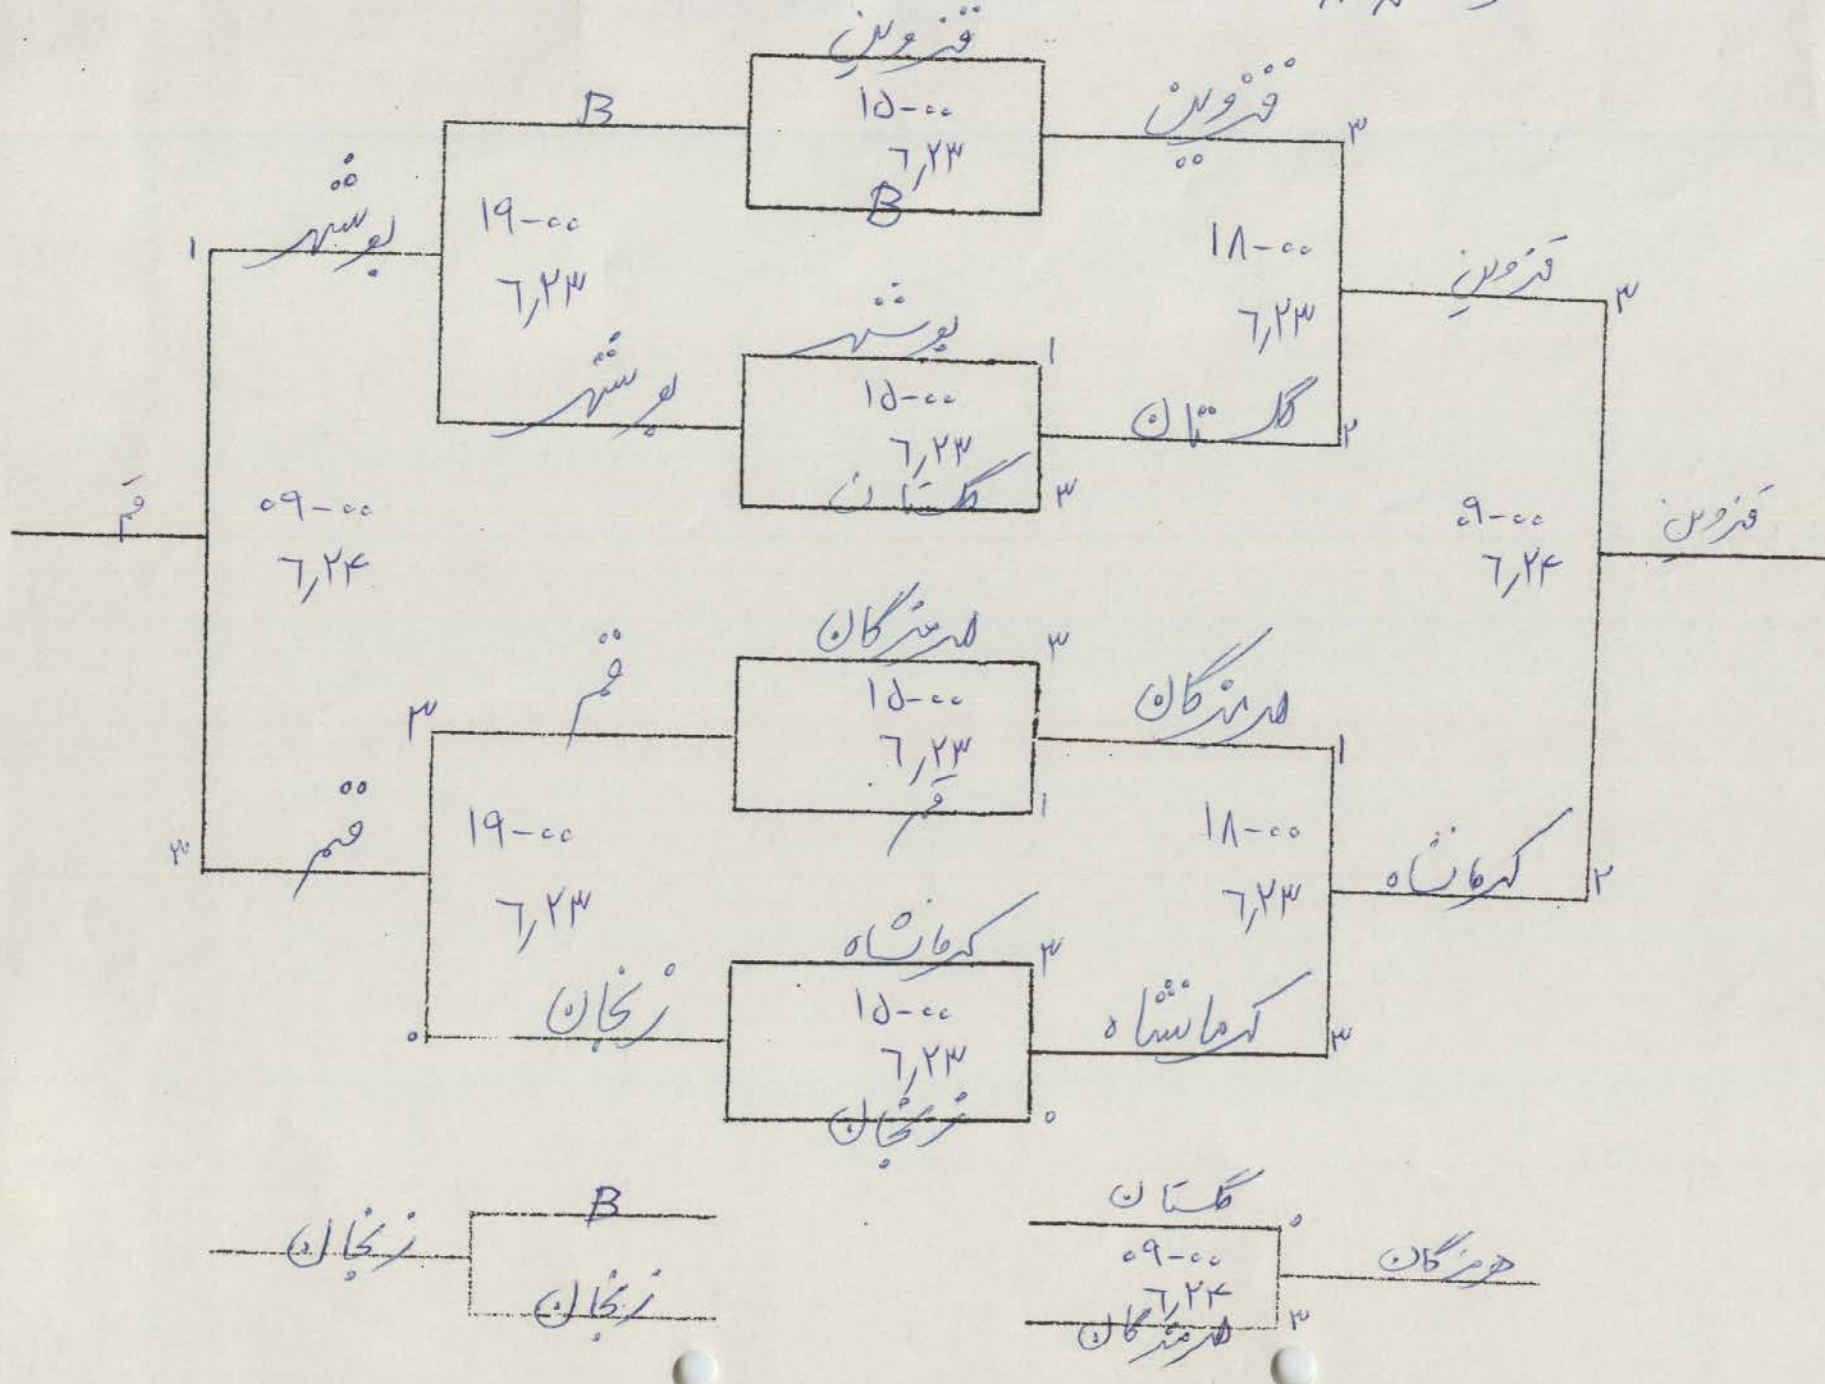 قزوین
B
۱۵-۰۰
۶٫۲۳
B
قزوین
۳
بوشهر
۱
۱۹-۰۰
۶٫۲۳
۱۸-۰۰
۶٫۲۳
قزوین
۳
بوشهر
۱
بوشهر
۱۵-۰۰
۶٫۲۳
گلستان
۳
گلستان
۲
قم
۰۹-۰۰
۶٫۲۴
۰۹-۰۰
۶٫۲۴
قزوین
هرمزگان
۳
قم
۳
۱۵-۰۰
۶٫۲۳
قم
۱
هرمزگان
۱
قم
۳
۱۹-۰۰
۶٫۲۳
۱۸-۰۰
۶٫۲۳
کرمانشاه
۲
کرمانشاه
۳
زنجان
۰
۱۵-۰۰
۶٫۲۳
زنجان
۰
کرمانشاه
۳
B
زنجان
زنجان
گلستان
۰
۰۹-۰۰
۶٫۲۴
هرمزگان
۳
هرمزگان